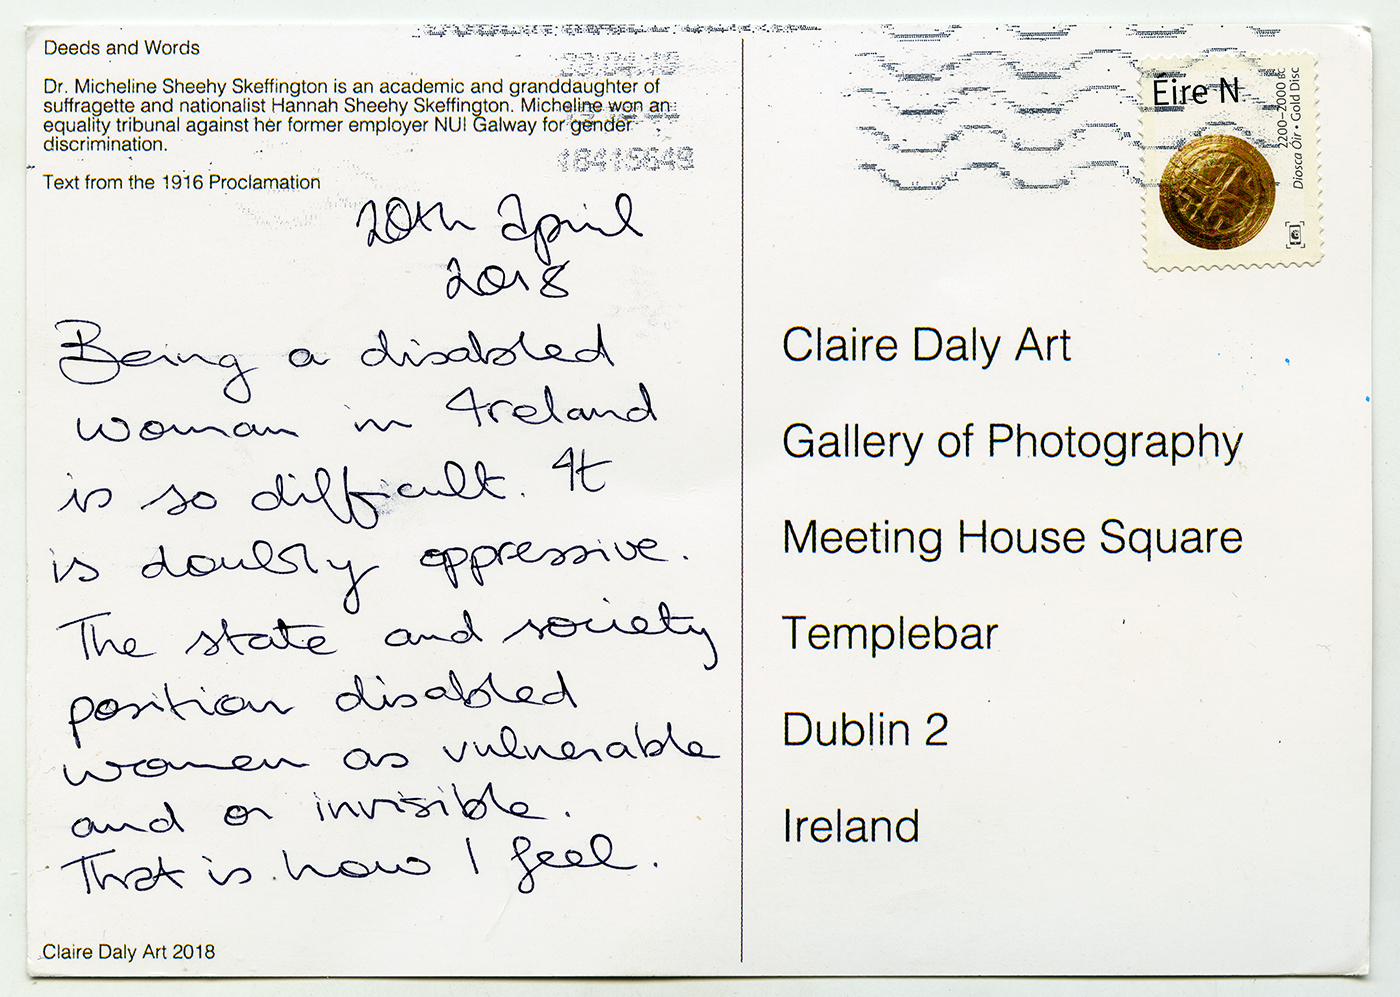 Deeds and Words
Dr. Micheline Sheehy Skeffington is an academic and granddaughter of
suffragette and nationalist Hannah Sheehy Skeffington. Micheline won an
equality tribunal against her former employer NUI Galway for gender
discrimination.
Text from the 1916 Proclamation
20th April
2018
Being a disabled
woman in Ireland
is so difficult. It
is doubly oppressive.
The state and society
position disabled
women as vulnerable
and or invisible.
That is how I feel.
Claire Daly Art 2018
18415649
Éire N
2200–2000 BC
Diosca Óir • Gold Disc
Claire Daly Art
Gallery of Photography
Meeting House Square
Templebar
Dublin 2
Ireland